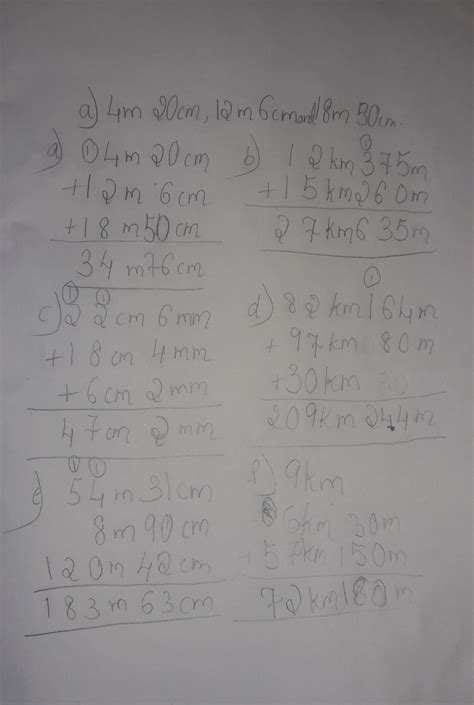 a) 4m 20cm, 12m 6cm and 18m 50cm.
a) 04m 20cm
+12m 6cm
+18m50cm
34m76cm
b) ①
12km375m
+15km260m
27km635m
c) ① ①
22cm 6mm
+18cm 4mm
+6cm 2mm
47cm 2mm
d) ①
82km164m
+97km 80m
+30km
209km244m
① ①
54m31cm
8m90cm
120m42cm
183m63cm
f) 9km
6km 30m
+57km150m
72km180m